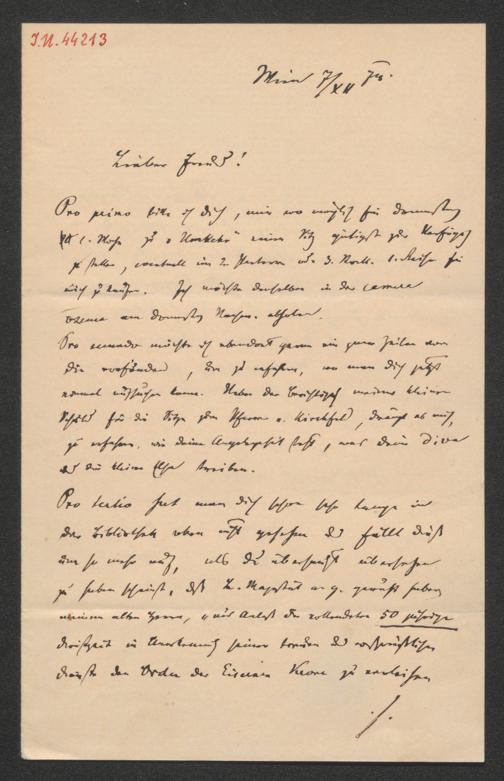 J.N. 44213
Wien 7/XII
Lieber Freund!
Pro primo bitte ich Dich, mir wo möglich für Donnerstag
zu " " einen Sitz gütigst zur Verfügung
zu stellen, eventuell im 2. Parterre oder 3. 1. Reihe für
mich zu kaufen. Ich möchte denselben in der camera
am Donnerstag Nachm. abholen.
Pro secundo möchte ich ebendort gerne ein paar Zeilen von
Dir vorfinden, um zu erfahren, wo man Dich jetzt
einmal aufsuchen kann. Neben der meiner kleinen
Schuld für die Sitze zum Pfarrer v. Kirchfeld, drängt es mich,
zu erfahren, wie Deine Angelegenheit steht, was Deine Diva
und die kleine Else treiben.
Pro tertio hat man Dich schon sehr lange in
der Bibliothek oben nicht gesehen und fällt dieß
um so mehr auf, als Du überhaupt übersehen
zu haben scheinst, daß S. Majestät a. g. geruht haben
meinem alten Herrn, "aus Anlaß der vollendeten 50 jährigen
Dienstzeit in Anerkennung seiner treuen und
Dienste den Orden der Eisernen Krone zu verleihen